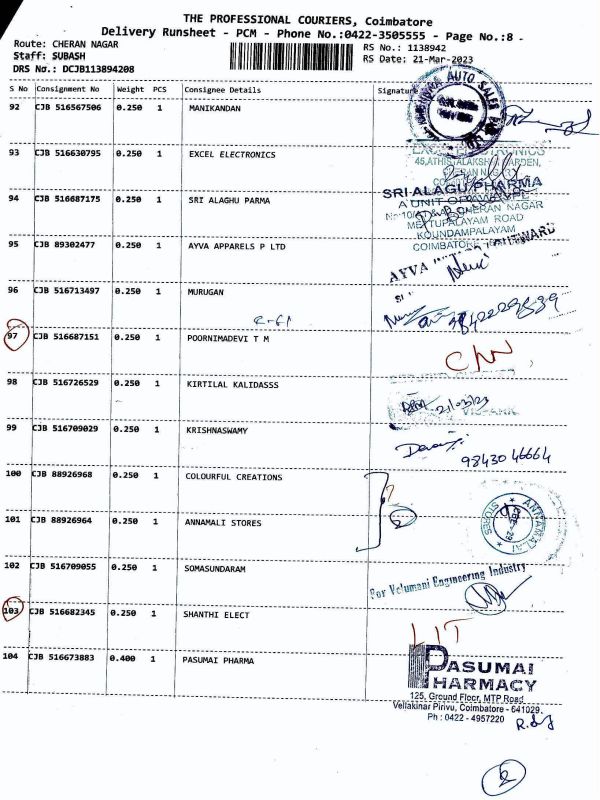 THE PROFESSIONAL COURIERS, Coimbatore
Delivery Runsheet - PCM - Phone No.:0422-3505555 - Page No.:8 -
Route: CHERAN NAGAR
RS No.: 1138942
Staff: SUBASH
RS Date: 21-Mar-2023
DRS No.: DCJB113894208
S No Consignment No Weight PCS Consignee Details Signatu
92 CJB 516567506 0.250 1 MANIKANDAN
AUTO SALES
93 CJB 516630795 0.250 1 EXCEL ELECTRONICS
EXCEL ELECTRONICS
94 CJB 516687175 0.250 1 SRI ALAGHU PARMA
SRI ALAGU PHARMA
A UNIT OF
CHERAN NAGAR
METTUPALAYAM ROAD
KOUNDAMPALAYAM
COIMBATORE
95 CJB 89302477 0.250 1 AYVA APPARELS P LTD
AYVA
96 CJB 516713497 0.250 1 MURUGAN
97 CJB 516687151 0.250 1 POORNIMADEVI T M
98 CJB 516726529 0.250 1 KIRTILAL KALIDASSS
21/03/23
99 CJB 516709029 0.250 1 KRISHNASWAMY
9843046664
100 CJB 88926968 0.250 1 COLOURFUL CREATIONS
2
101 CJB 88926964 0.250 1 ANNAMALI STORES
ANNAMALAI STORES
102 CJB 516709055 0.250 1 SOMASUNDARAM
For Velumani Engineering Industry
103 CJB 516682345 0.250 1 SHANTHI ELECT
LIT
104 CJB 516673883 0.400 1 PASUMAI PHARMA
PASUMAI
PHARMACY
125, Ground Floor, MTP Road
Vellakinar Pirivu, Coimbatore - 641029.
Ph : 0422 - 4957220
2